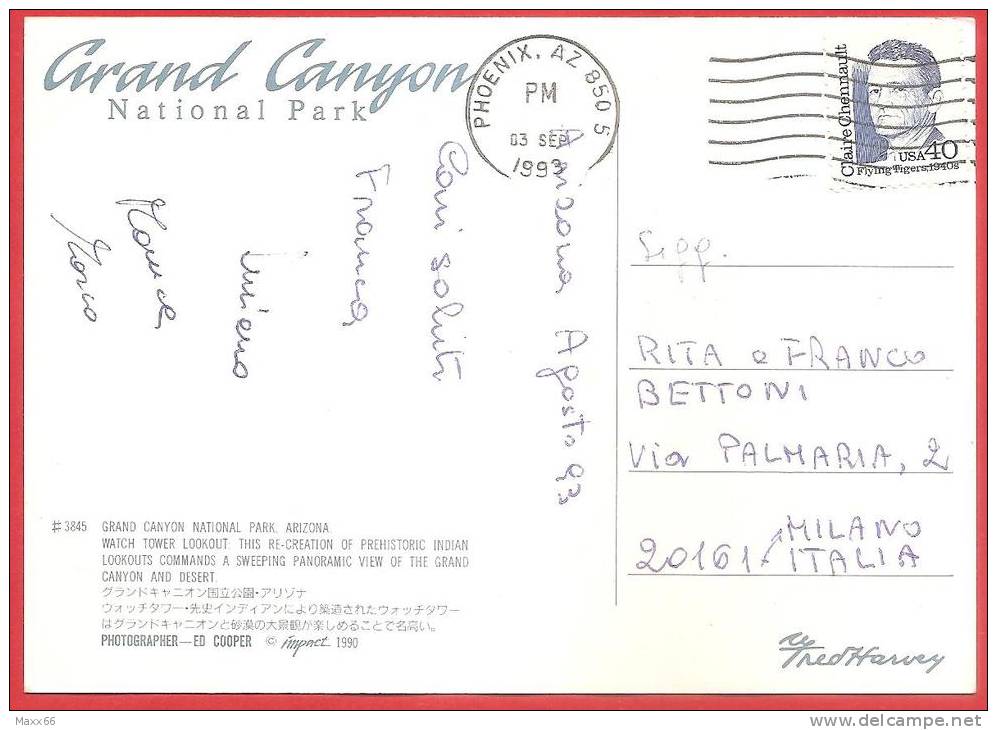 Grand Canyon
National Park
PHOENIX, AZ 850 5
PM
03 SEP
1993
Claire Chennault
USA 40
Flying Tigers, 1940s
Arizona Agosto 93
Cari saluti
Franca
Marco
Sigg.
RITA e FRANCO
BETTONI
Via PALMARIA, 2
MILANO
20161 ITALIA
#3845 GRAND CANYON NATIONAL PARK, ARIZONA
WATCH TOWER LOOKOUT: THIS RE-CREATION OF PREHISTORIC INDIAN
LOOKOUTS COMMANDS A SWEEPING PANORAMIC VIEW OF THE GRAND
CANYON AND DESERT.
グランドキャニオン国立公園・アリゾナ
ウォッチタワー・先史インディアンにより築造されたウォッチタワー
はグランドキャニオンと砂漠の大景観が楽しめることで名高い。
PHOTOGRAPHER—ED COOPER © impact 1990
Fred Harvey
Maxx66
www.delcampe.net